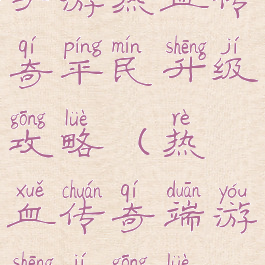 手游热血传
qí píng mín shēng jí
奇平民升级
gōng lüè rè
攻略（热
xuě chuán qí duān yóu
血传奇端游
shēng jí gōng lüè